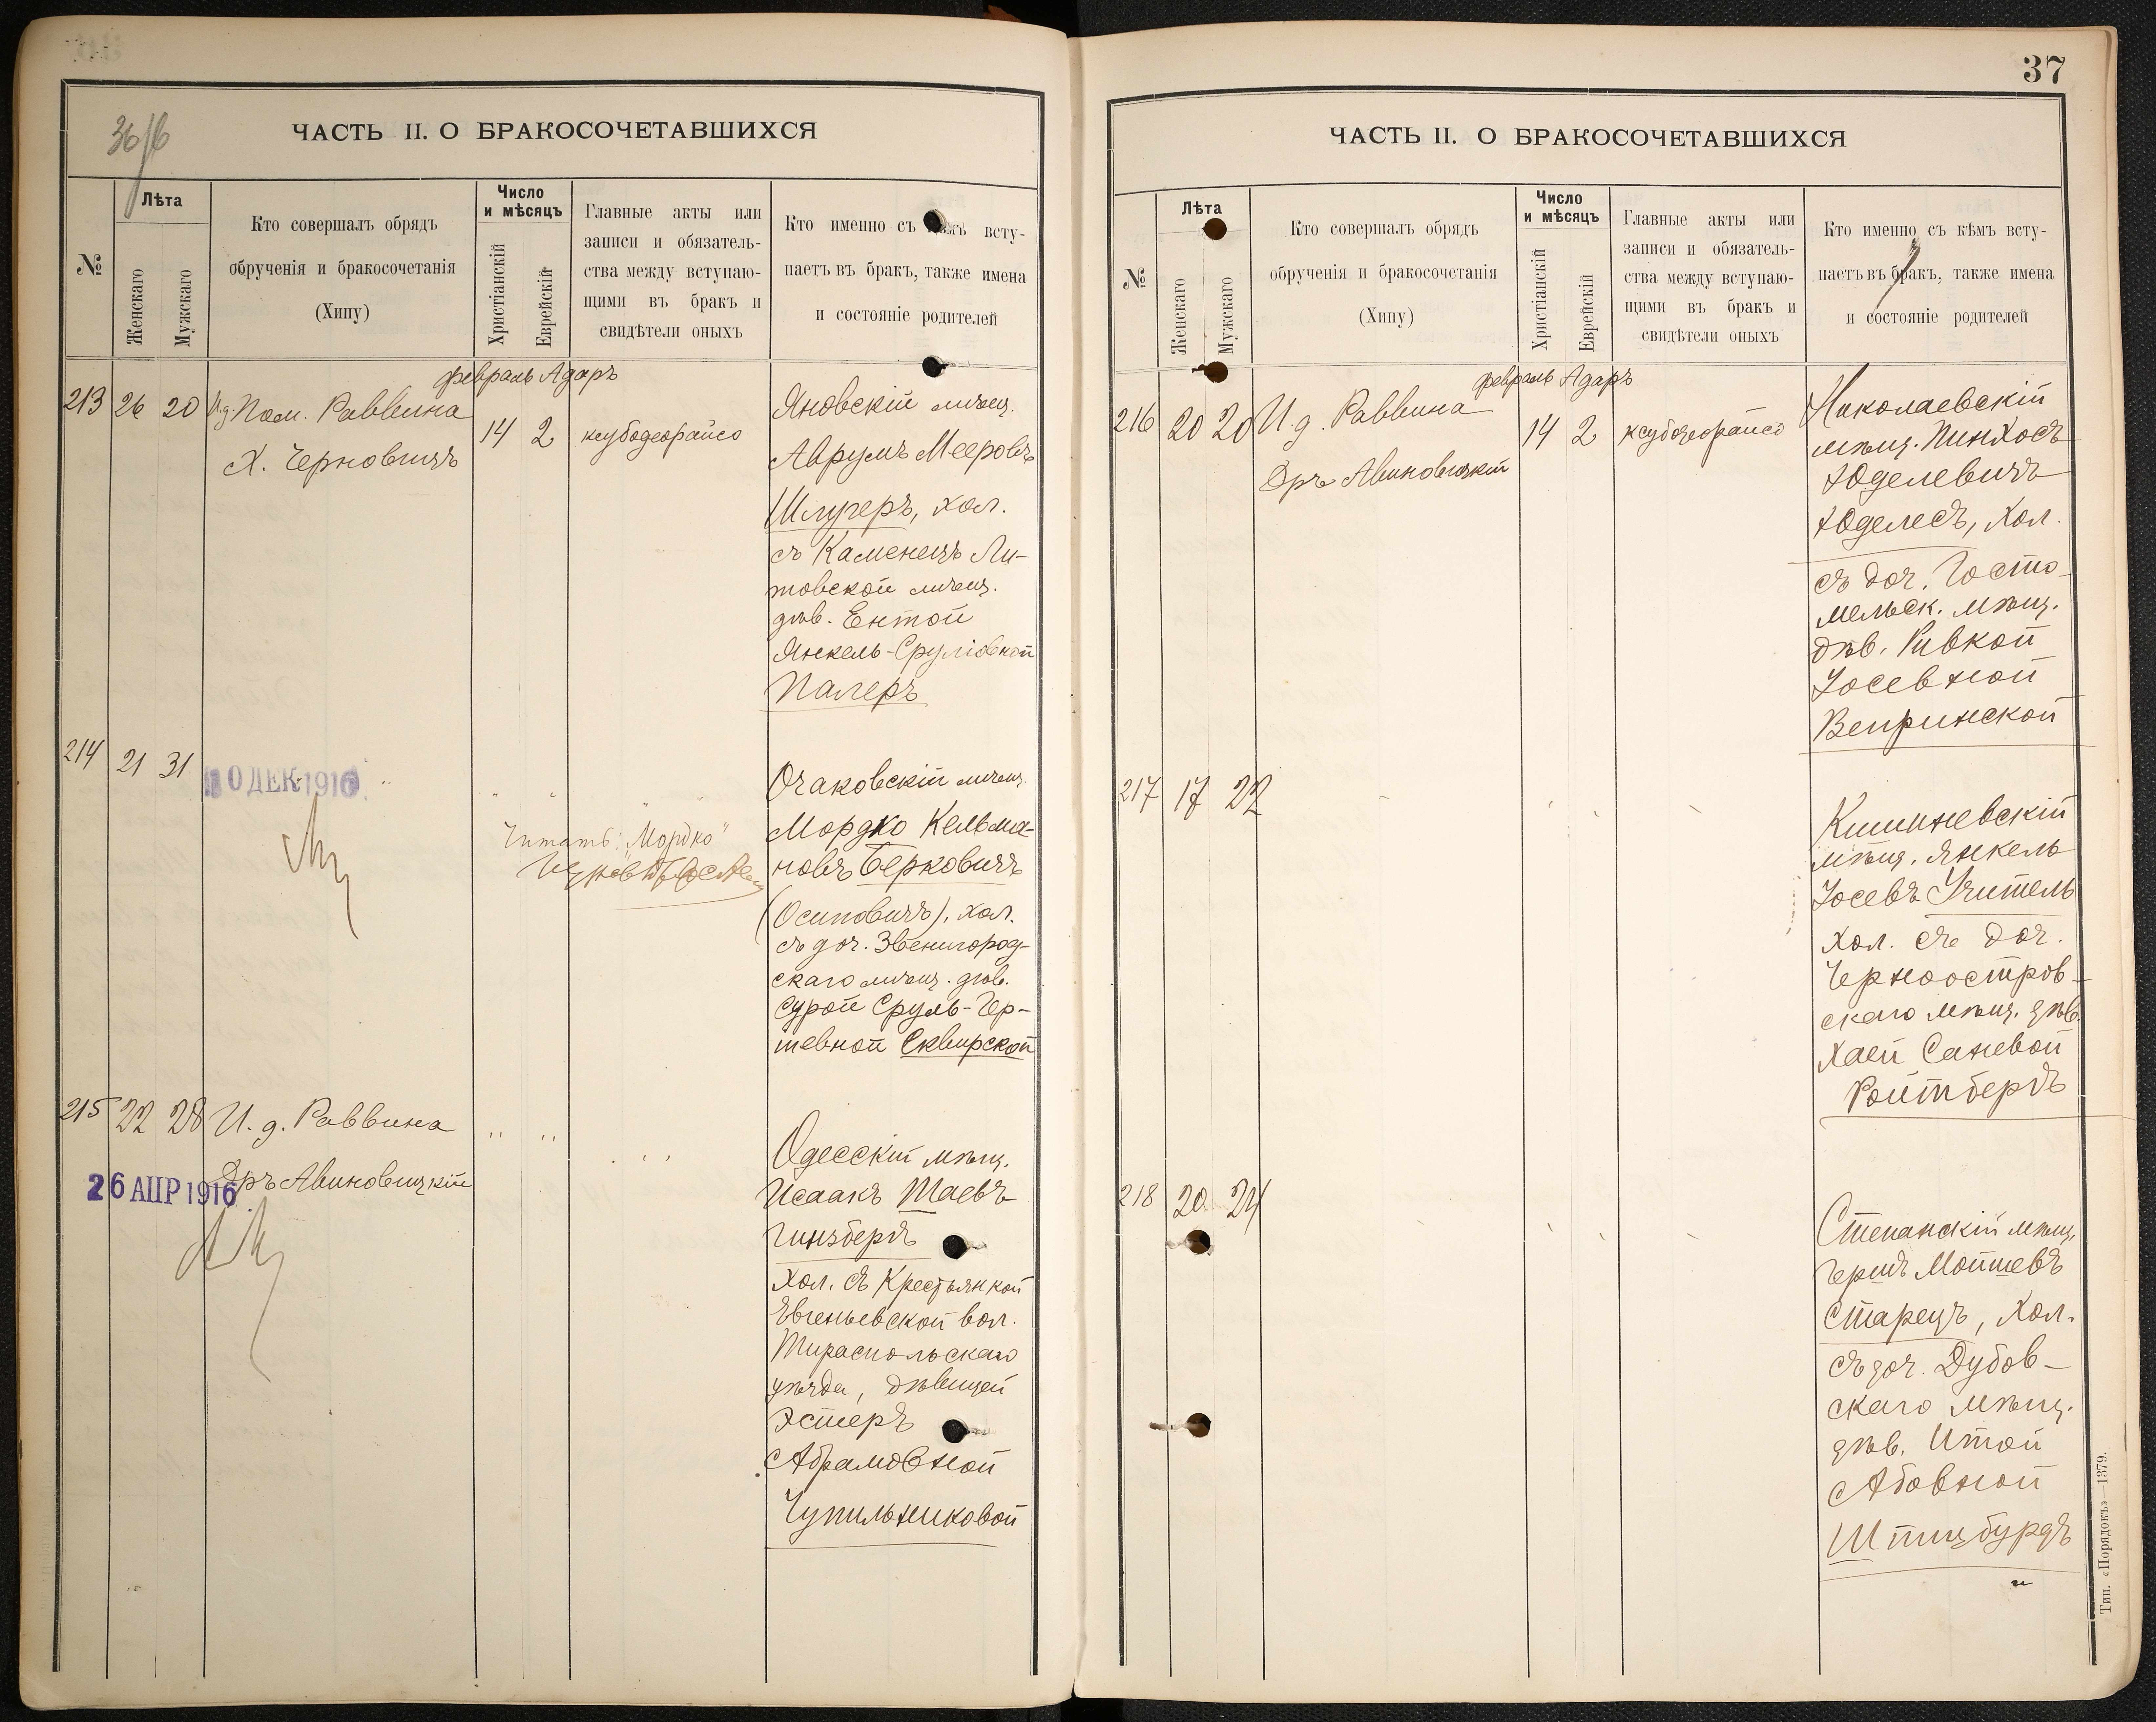 36/6
ЧАСТЬ II. О БРАКОСОЧЕТАВШИХСЯ
№
Лѣта
Женскаго
Мужскаго
Кто совершалъ обрядъ
обрученія и бракосочетанія
(Хипу)
Число
и мѣсяцъ
Христіанскій
Еврейскій
Главные акты или
записи и обязатель-
ства между вступаю-
щими въ бракъ и
свидѣтели оныхъ
Кто именно съ кѣмъ всту-
паетъ въ бракъ, также имена
и состояніе родителей
февраль Адаръ
213 26 20 И.д. Пом. Раввина
Х. Черновичъ
14 2
ксубодеорайсо
Яновскій мѣщ.
Аврумъ Мееровъ
Шлугеръ, хол.
съ Каменецъ Ли-
товской мѣщ.
дѣв. Ентой
Янкель-Сруліовной
Палеръ
214 21 31
10 ДЕК 1916
Читать: „Мордко"
Очаковскій мѣщ.
Мордко Кельма-
новъ Берковичъ
(Осиповичъ), хол.
съ доч. Звенигород-
скаго мѣщ. дѣв.
Сурой Сруль-Гер-
шевной Сквирской
215 22 28 И. д. Раввина
Дръ Авиновицкій
26 АПР 1916
" "
Одесскій мѣщ.
Исаакъ Шаевъ
Гинзбергъ
Хол. съ Крестьянкой
Евгеньевской вол.
Тираспольскаго
уѣзда, дѣвицей
Эстеръ
Абрамовной
Чупильниковой
37
ЧАСТЬ II. О БРАКОСОЧЕТАВШИХСЯ
№
Лѣта
Женскаго
Мужскаго
Кто совершалъ обрядъ
обрученія и бракосочетанія
(Хипу)
Число
и мѣсяцъ
Христіанскій
Еврейскій
Главные акты или
записи и обязатель-
ства между вступаю-
щими въ бракъ и
свидѣтели оныхъ
Кто именно съ кѣмъ всту-
паетъ въ бракъ, также имена
и состояніе родителей
февраль Адаръ
216 20 20 И. д. Раввина
Дръ Авиновицкій
14 2
ксубодеорайсо
Николаевскій
мѣщ. Пинхосъ
Юделевичъ
Юделесъ, Хол.
съ доч. Госто-
мельск. мѣщ.
дѣв. Ривкой
Іосевной
Вепринской
217 17 22
Кишиневскій
мѣщ. Янкель
Іосевъ Учитель
хол. съ доч.
Черноостров-
скаго мѣщ. дѣв.
Хаей Саневой
Ройтбергъ
218 20 24
Степанскій мѣщ.
Гершъ Мойшевъ
Старецъ, Хол.
съ доч. Дубов-
скаго мѣщ.
дѣв. Итой
Абовной
Шпицбургъ
Тип. «Порядокъ»—1379.